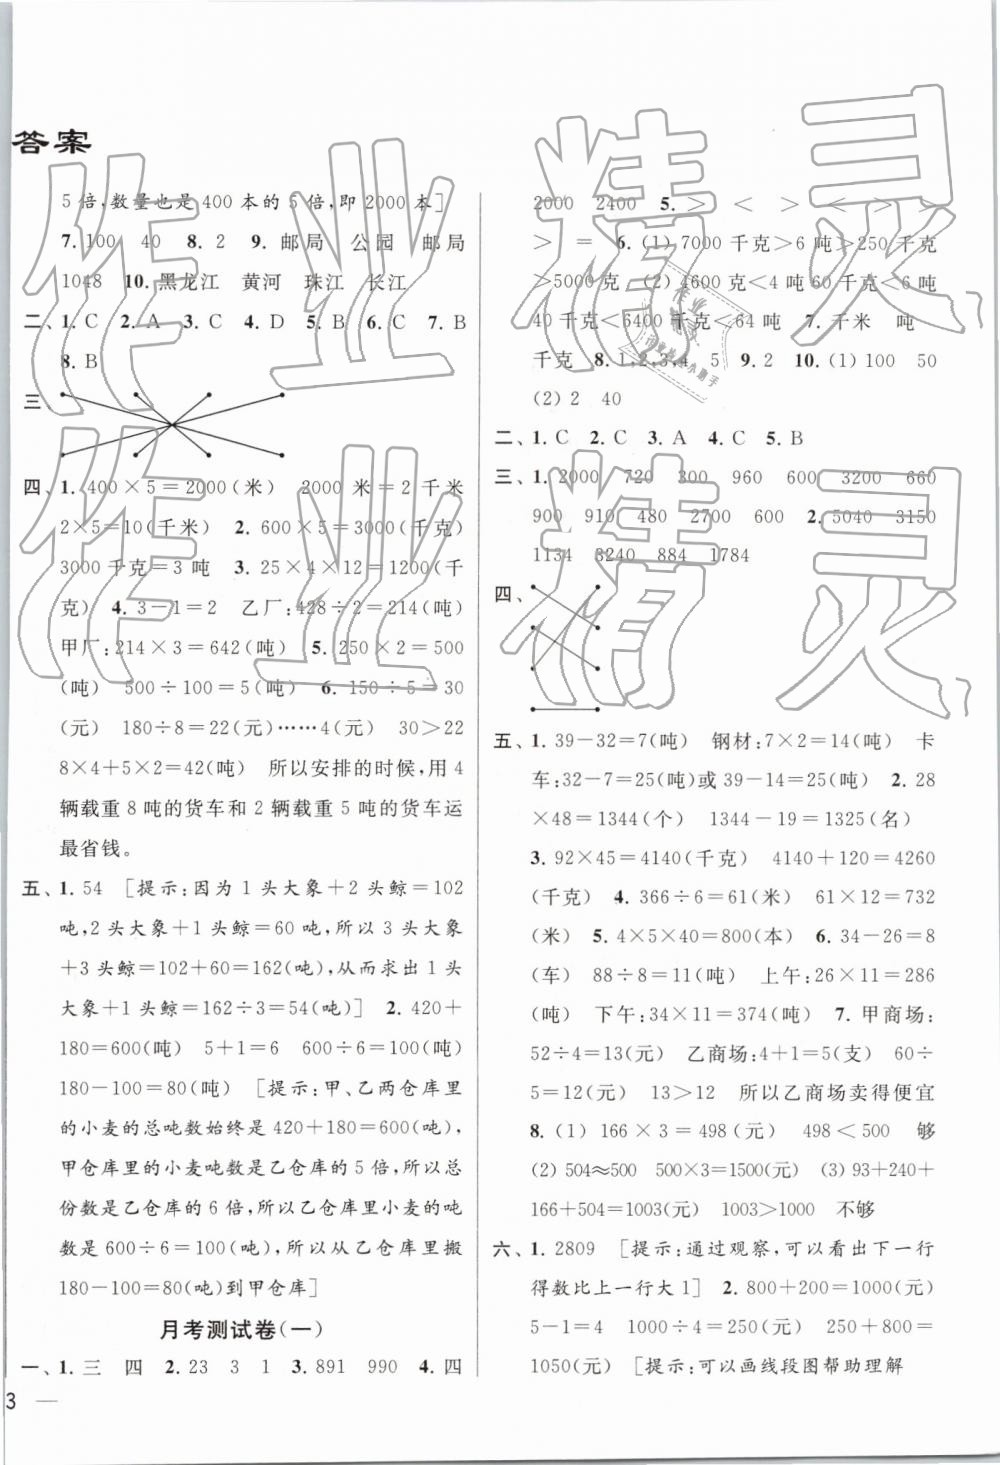 答案
5 倍,数量也是 400 本的 5 倍,即 2000 本]
7. 100　40　8. 2　9. 邮局　公园　邮局
1048　10. 黑龙江　黄河　珠江　长江
二、1. C　2. A　3. C　4. D　5. B　6. C　7. B
8. B
三、
四、1. 400×5=2000(米)　2000 米=2 千米
2×5=10(千米)　2. 600×5=3000(千克)
3000 千克=3 吨　3. 25×4×12=1200(千
克)　4. 3-1=2　乙厂:428÷2=214(吨)
甲厂:214×3=642(吨)　5. 250×2=500
(吨)　500÷100=5(吨)　6. 150÷5=30
(元)　180÷8=22(元)……4(元)　30>22
8×4+5×2=42(吨)　所以安排的时候,用 4
辆载重 8 吨的货车和 2 辆载重 5 吨的货车运
最省钱。
五、1. 54　[提示:因为 1 头大象+2 头鲸=102
吨,2 头大象+1 头鲸=60 吨,所以 3 头大象
+3 头鲸=102+60=162(吨),从而求出 1 头
大象+1 头鲸=162÷3=54(吨)]　2. 420+
180=600(吨)　5+1=6　600÷6=100(吨)
180-100=80(吨)　[提示:甲、乙两仓库里
的小麦的总吨数始终是 420+180=600(吨),
甲仓库里的小麦吨数是乙仓库的 5 倍,所以总
份数是乙仓库的 6 倍,所以乙仓库里小麦的吨
数是 600÷6=100(吨),所以从乙仓库里搬
180-100=80(吨)到甲仓库]
月考测试卷(一)
一、1. 三　四　2. 23　3　1　3. 891　990　4. 四
3
2000　2400　5. >　<　>　<　>
>　=　6. (1) 7000 千克>6 吨>250 千克
>5000 克　(2) 4600 克<4 吨 60 千克<6 吨
40 千克<6400 千克<64 吨　7. 千米　吨
千克　8. 1,2,3,4,　5　9. 2　10. (1) 100　50
(2) 2　40
二、1. C　2. C　3. A　4. C　5. B
三、1. 2000　720　300　960　600　3200　660
900　910　480　2700　600　2. 5040　3150
1134　3240　884　1784
四、
五、1. 39-32=7(吨)　钢材:7×2=14(吨)　卡
车:32-7=25(吨)或 39-14=25(吨)　2. 28
×48=1344(个)　1344-19=1325(名)
3. 92×45=4140(千克)　4140+120=4260
(千克)　4. 366÷6=61(米)　61×12=732
(米)　5. 4×5×40=800(本)　6. 34-26=8
(车)　88÷8=11(吨)　上午:26×11=286
(吨)　下午:34×11=374(吨)　7. 甲商场:
52÷4=13(元)　乙商场:4+1=5(支)　60÷
5=12(元)　13>12　所以乙商场卖得便宜
8. (1) 166×3=498(元)　498<500　够
(2) 504≈500　500×3=1500(元)　(3) 93+240+
166+504=1003(元)　1003>1000　不够
六、1. 2809　[提示:通过观察,可以看出下一行
得数比上一行大 1]　2. 800+200=1000(元)
5-1=4　1000÷4=250(元)　250+800=
1050(元)　[提示:可以画线段图帮助理解
作业精灵
作业精灵